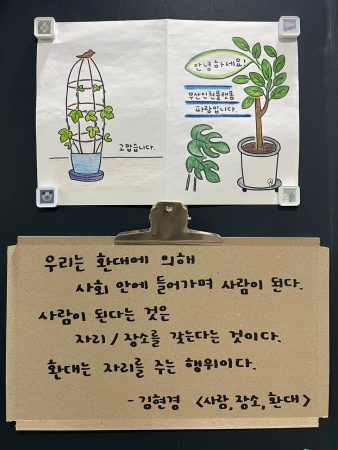 안녕하세요!
부산인권플랫폼
파랑입니다.
고맙습니다.
우리는 환대에 의해
사회 안에 들어가며 사람이 된다.
사람이 된다는 것은
자리/장소를 갖는다는 것이다.
환대는 자리를 주는 행위이다.
- 김현경 <사람, 장소, 환대>